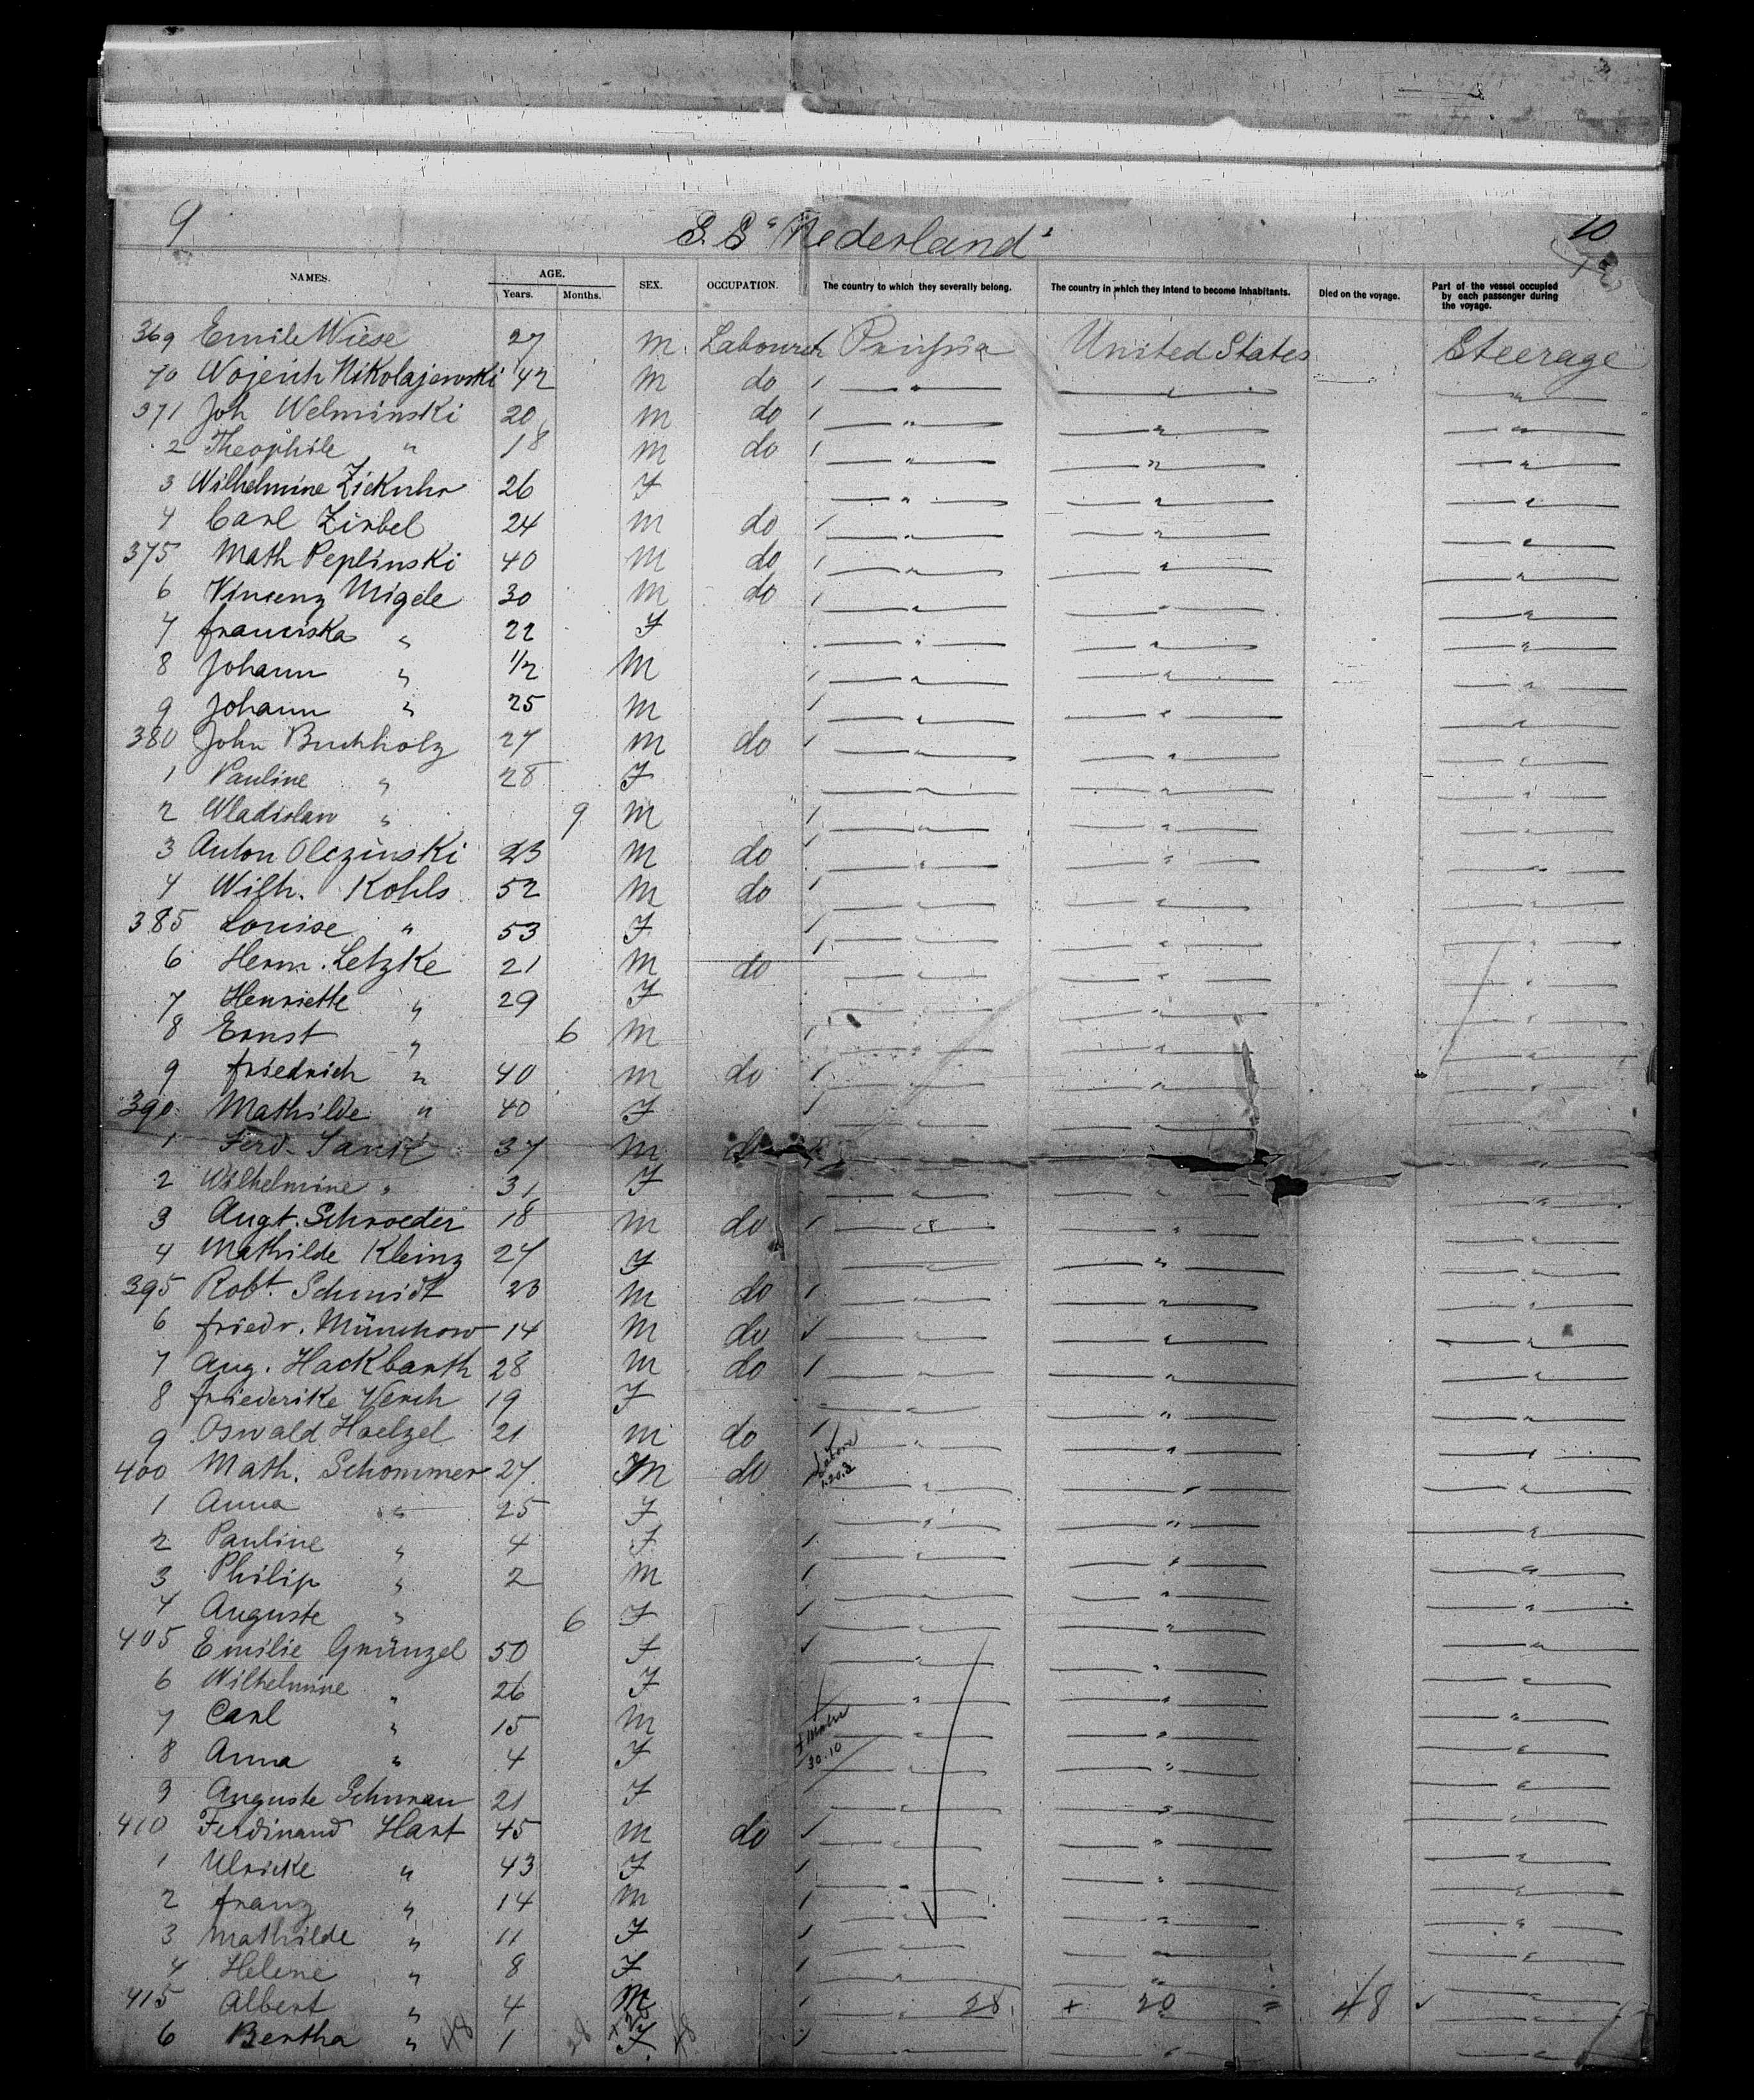 9
10
S. S. "Nederland"
NAMES. AGE. SEX. OCCUPATION. The country to which they severally belong. The country in which they intend to become inhabitants. Died on the voyage. Part of the vessel occupied by each passenger during the voyage.
Years. Months.
369 Emile Wiese 27 m. Labourer Prussia United States Steerage
70 Wojerich Nikolajewski 42 m do / " " "
371 Joh Welminski 20 m do / " " "
2 Theophile " 18 m do / " " "
3 Wilhelmine Zickuhr 26 F " " "
4 Carl Zirbel 24 m do / " " "
375 Math Peplinski 40 m do / " " "
6 Vincenz Migele 30 m do / " " "
7 franciska " 22 F " " "
8 Johann " 1/2 M / " " "
9 Johann " 25 m / " " "
380 John Buchholz 27 m do / " " "
1 Pauline " 28 F " " "
2 Wladislaw " 9 m / " " "
3 Anton Olczinski 23 m do / " " "
4 Wilh. Kohls 52 m do / " " "
385 Louise " 53 F / " " "
6 Herm. Letzke 21 m do / " " "
7 Henriette " 29 F " " "
8 Ernst " 6 m / " " "
9 friedrich " 40 m do / " " "
390 Mathilde " 40 F / " " "
1 Ferd. 37 m " " "
2 Wilhelmine " 31 F " " "
3 Augt. Schroeder 18 m do / " " "
4 Mathilde Kleinz 27 F " " "
395 Robt. Schmidt 23 m do / " " "
6 friedr. Münchow 14 m do / " " "
7 Aug. Hackbarth 28 m do / " " "
8 friederike Verch 19 F " " "
9 Oswald Haelzel 21 m do / " " "
400 Math. Schommer 27 m do " " "
1 Anna " 25 F " " "
2 Pauline " 4 F / " " "
3 Philip " 2 m / " " "
4 Auguste " 6 F / " " "
405 Emilie Grünzel 50 F / " " "
6 Wilhelmine " 26 F " " "
7 Carl " 15 m " " "
30.10
8 Anna " 4 F " " "
9 Auguste 21 F " " "
410 Ferdinand Hart 45 m do / " " "
1 Ulricke " 43 F / " " "
2 franz " 14 m / " " "
3 Mathilde " 11 F / " " "
4 Helene " 8 F / " " "
415 Albert " 4 M / " 28 + 20 = 48 "
6 Bertha " 48 1 28 F. / " " "